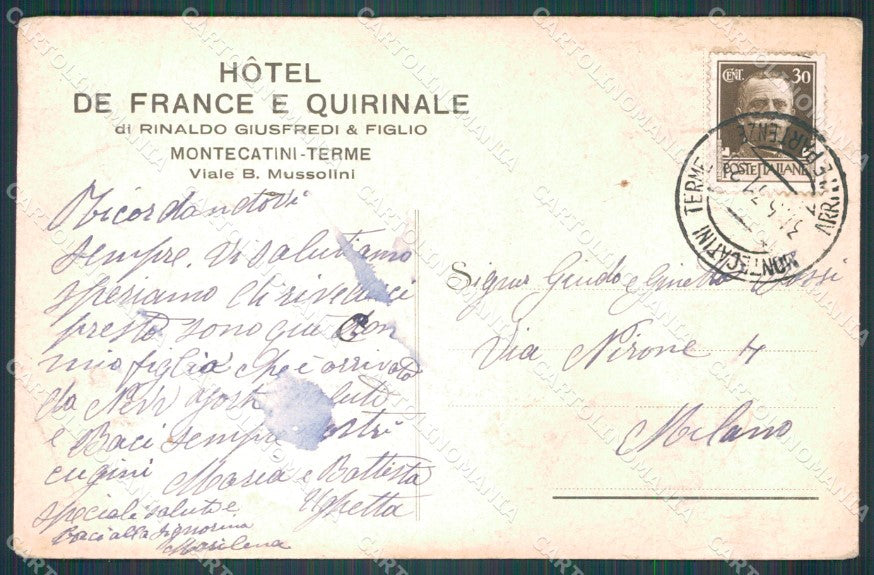 HÔTEL
DE FRANCE E QUIRINALE
di RINALDO GIUSFREDI & FIGLIO
MONTECATINI-TERME
Viale B. Mussolini
Ricordandovi
sempre. Vi salutiamo
speriamo di rivederci
presto sono qui con
mia figlia che è arrivata
da New York saluti
e Baci sempre vostri
cugini Maria e Battista
Ughetta
speciali saluti e
Baci alla Signorina
Marilena
CENT. 30
POSTE ITALIANE
MONTECATINI TERME
ARRIVI E PARTENZE
Signor Guido e Ginetta Rossi
Via Nirone 4
Milano
CARTOLINOMANIA